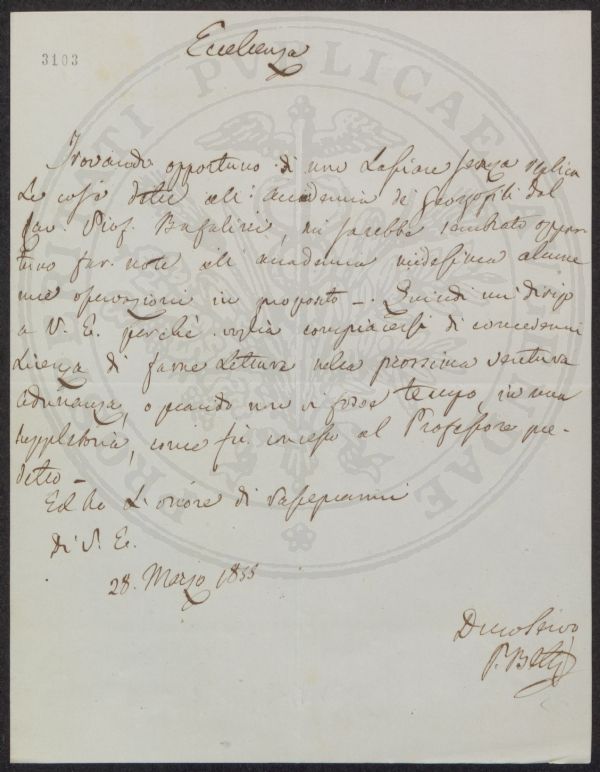 3103
Eccelenza
Trovando opportuno di non lasciare senza replica
le cose dette all' Accademia de' Georgofili dal
Cav. Prof. Bufalini, mi sarebbe sembrato oppor
tuno far note all' Accademia medesima alcune
mie operazioni in proposito —. Quindi mi dirigo
a V. E. perchè voglia compiacersi di concedermi
licenza di farne lettura nella prossima ventura
adunanza, o quando non vi fosse tempo, in una
suppletoria, come fù concesso al Professore pre-
detto —
Ed ho l'onore di
di V. E.
28. Marzo 1855
Servo
P. Betti
PROSPERITATI PVBLICAE AVGENDAE